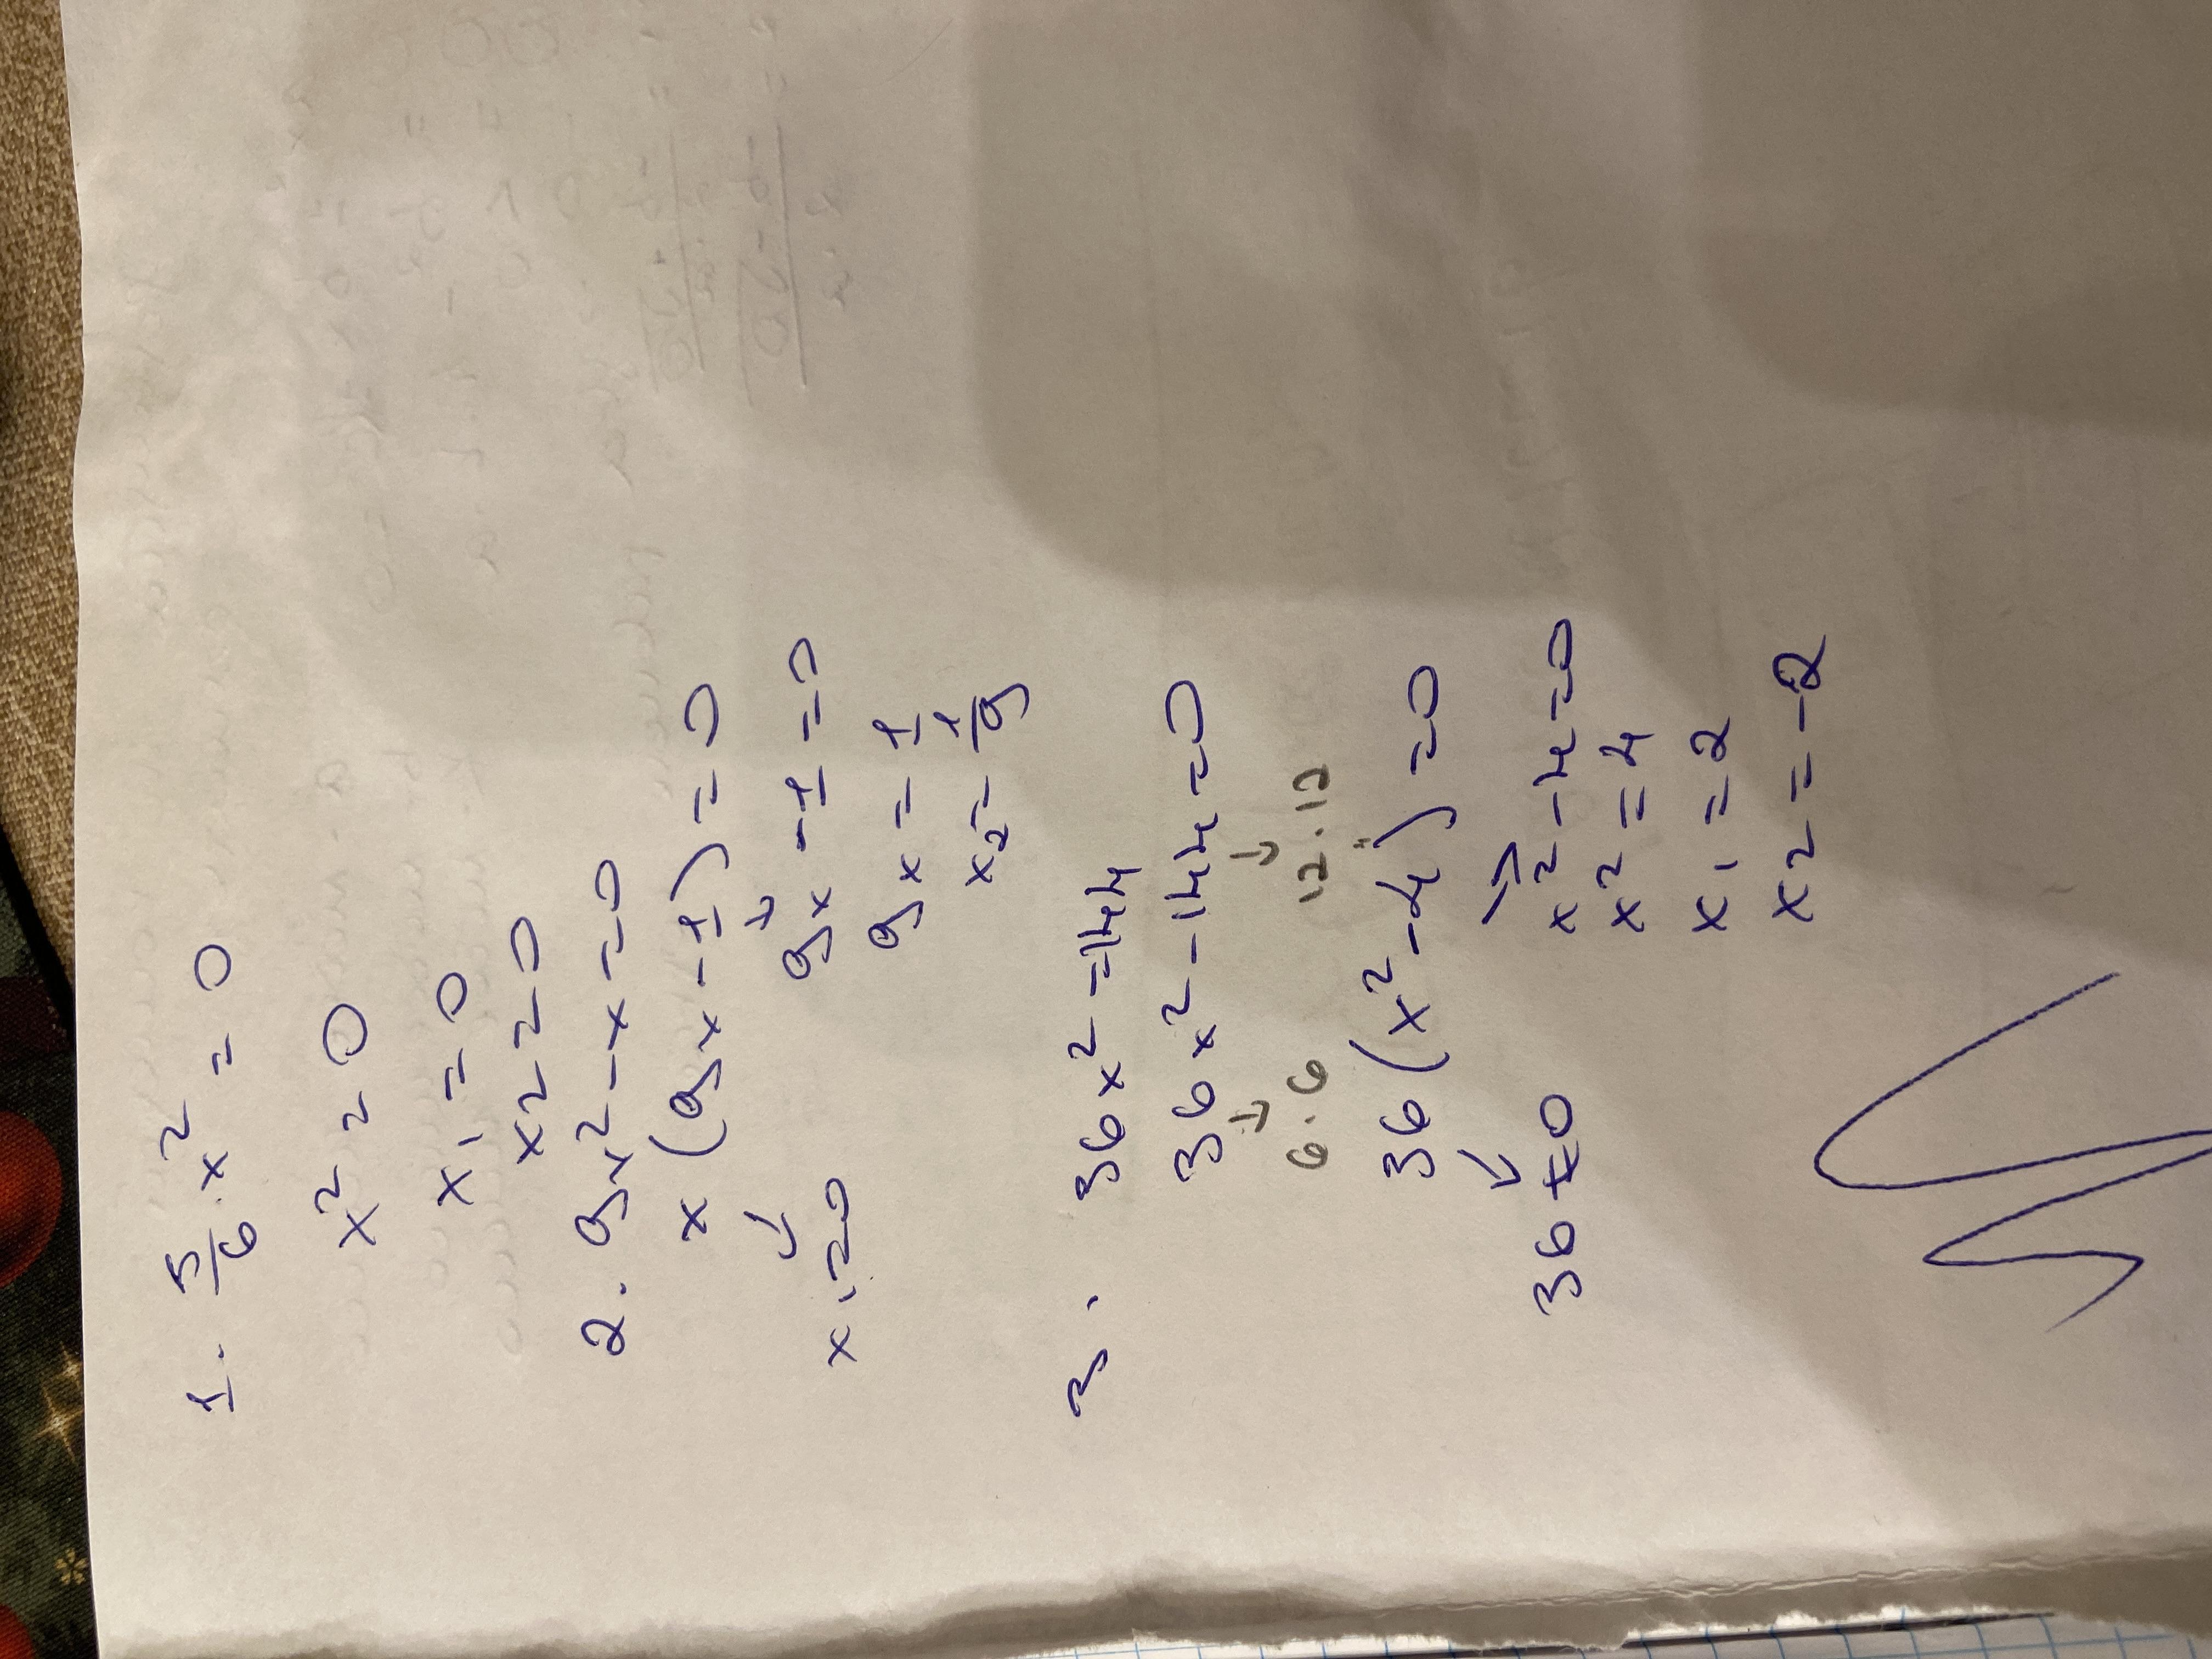 1. 5/6 · x² = 0
x² = 0
x₁ = 0
x₂ = 0
2. 9x² - x = 0
x (9x - 1) = 0
↓ ↓
x₁ = 0 9x - 1 = 0
9x = 1
x₂ = 1/9
3. 36x² = 144
36x² - 144 = 0
↓ ↓
6·6 12·12
36 (x² - 4) = 0
↓ ↓
36 ≠ 0 x² - 4 = 0
x² = 4
x₁ = 2
x₂ = -2